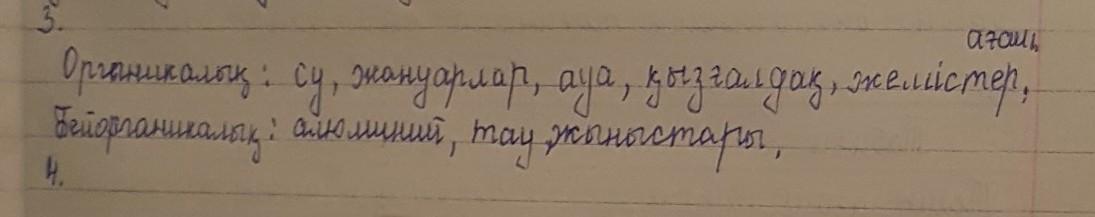 3.
ағаш,
Органикалық: су, жануарлар, ауа, қызғалдақ, желістер,
Бейорганикалық: алюминий, тау жыныстары,
4.